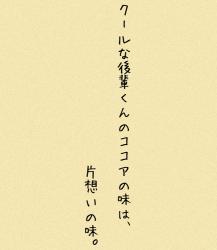 クールな後輩くんのココアの味は、
片想いの味。